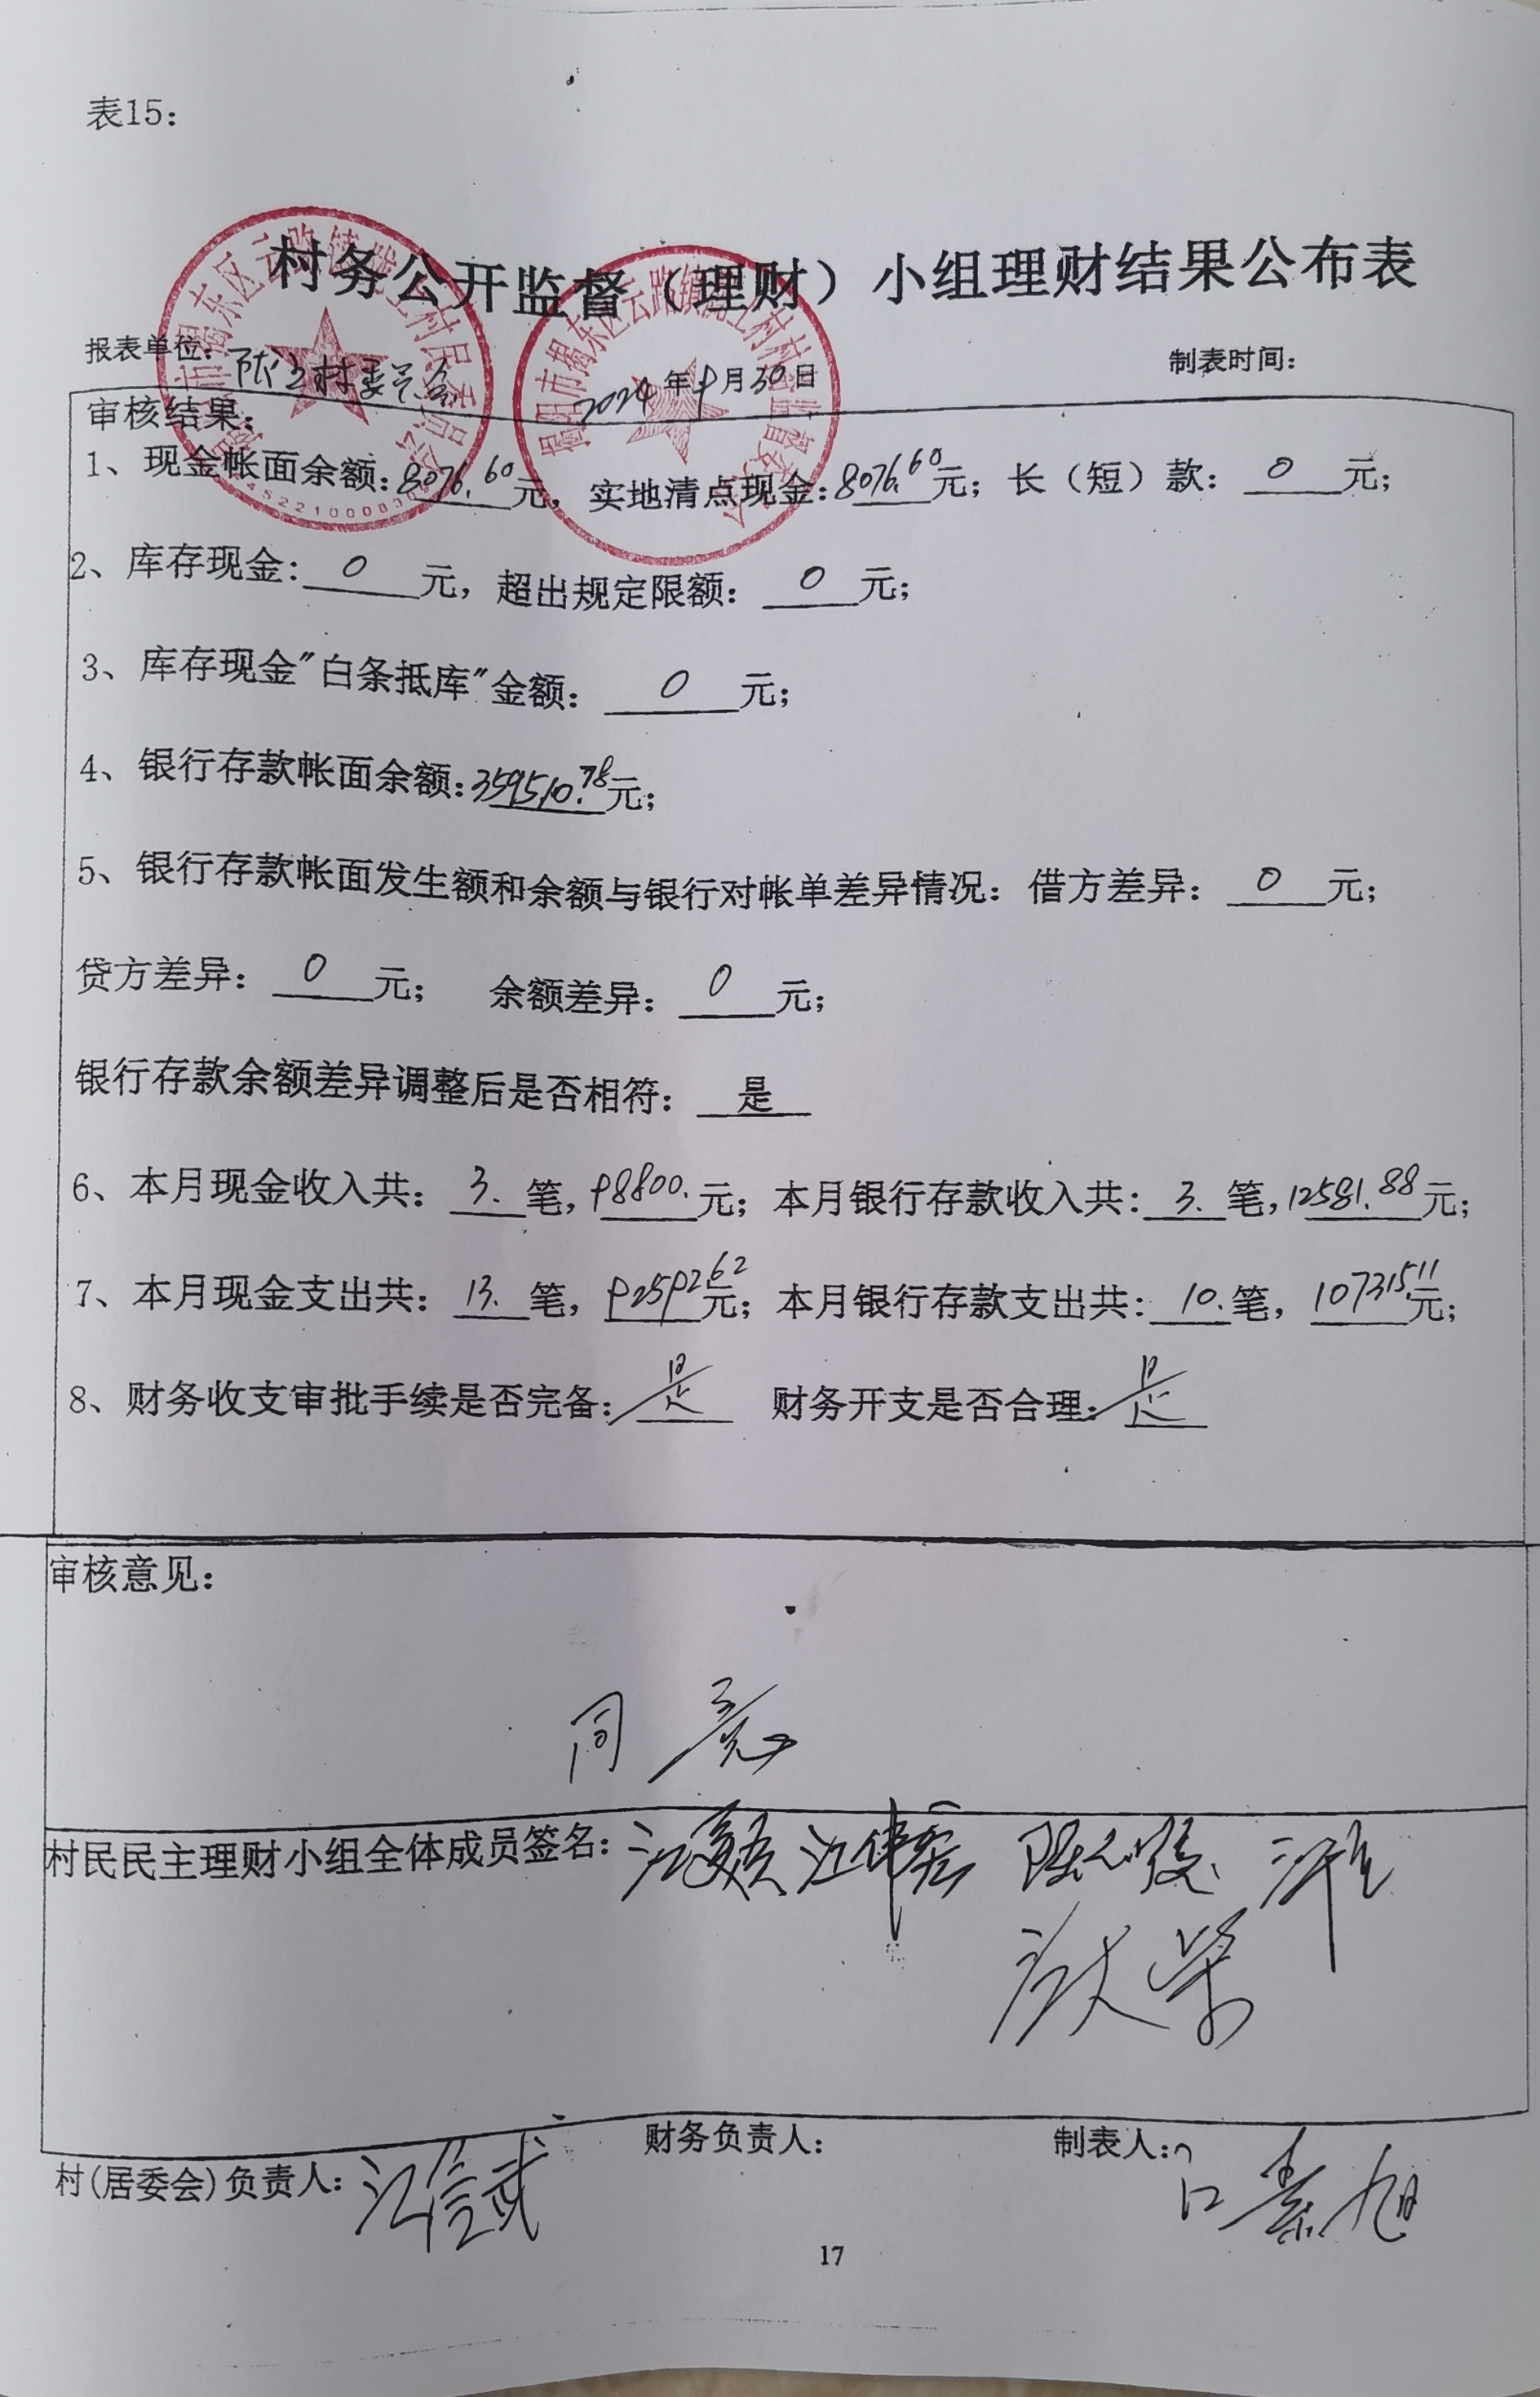 表15：
村务公开监督（理财）小组理财结果公布表
报表单位：陇上村委员会 2024年9月30日 制表时间：
审核结果：
1、现金帐面余额：8076.60元，实地清点现金：8076.60元；长（短）款：0元；
2、库存现金：0元，超出规定限额：0元；
3、库存现金"白条抵库"金额：0元；
4、银行存款帐面余额：359510.78元；
5、银行存款帐面发生额和余额与银行对帐单差异情况：借方差异：0元；
贷方差异：0元；余额差异：0元；
银行存款余额差异调整后是否相符：是
6、本月现金收入共：3.笔，98800.元；本月银行存款收入共：3.笔，12581.88元；
7、本月现金支出共：13.笔，92592.62元；本月银行存款支出共：10.笔，107315.11元；
8、财务收支审批手续是否完备：是 财务开支是否合理：是
审核意见：
同意
村民民主理财小组全体成员签名：
财务负责人： 制表人：
村(居委会)负责人：江信武
17